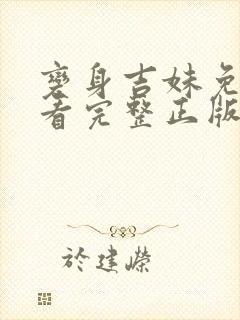 变身吉妹免
看完整正版
於建嶸